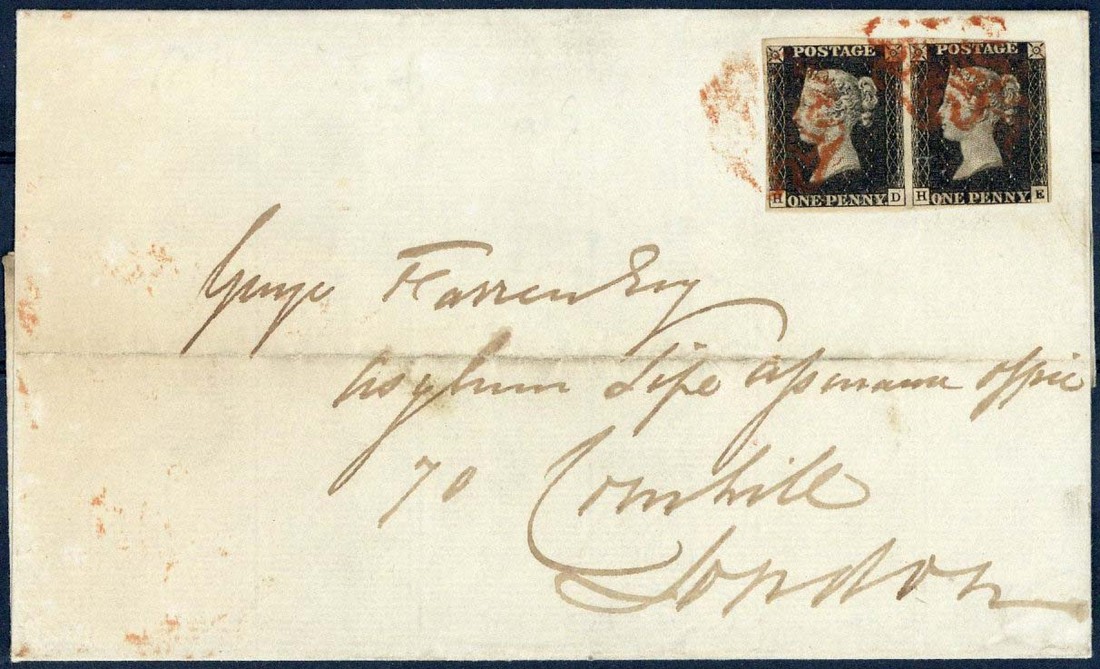 POSTAGE POSTAGE
H ONE PENNY D H ONE PENNY E
George Farren Esq
Asylum Life Assurance Office
70 Cornhill
London